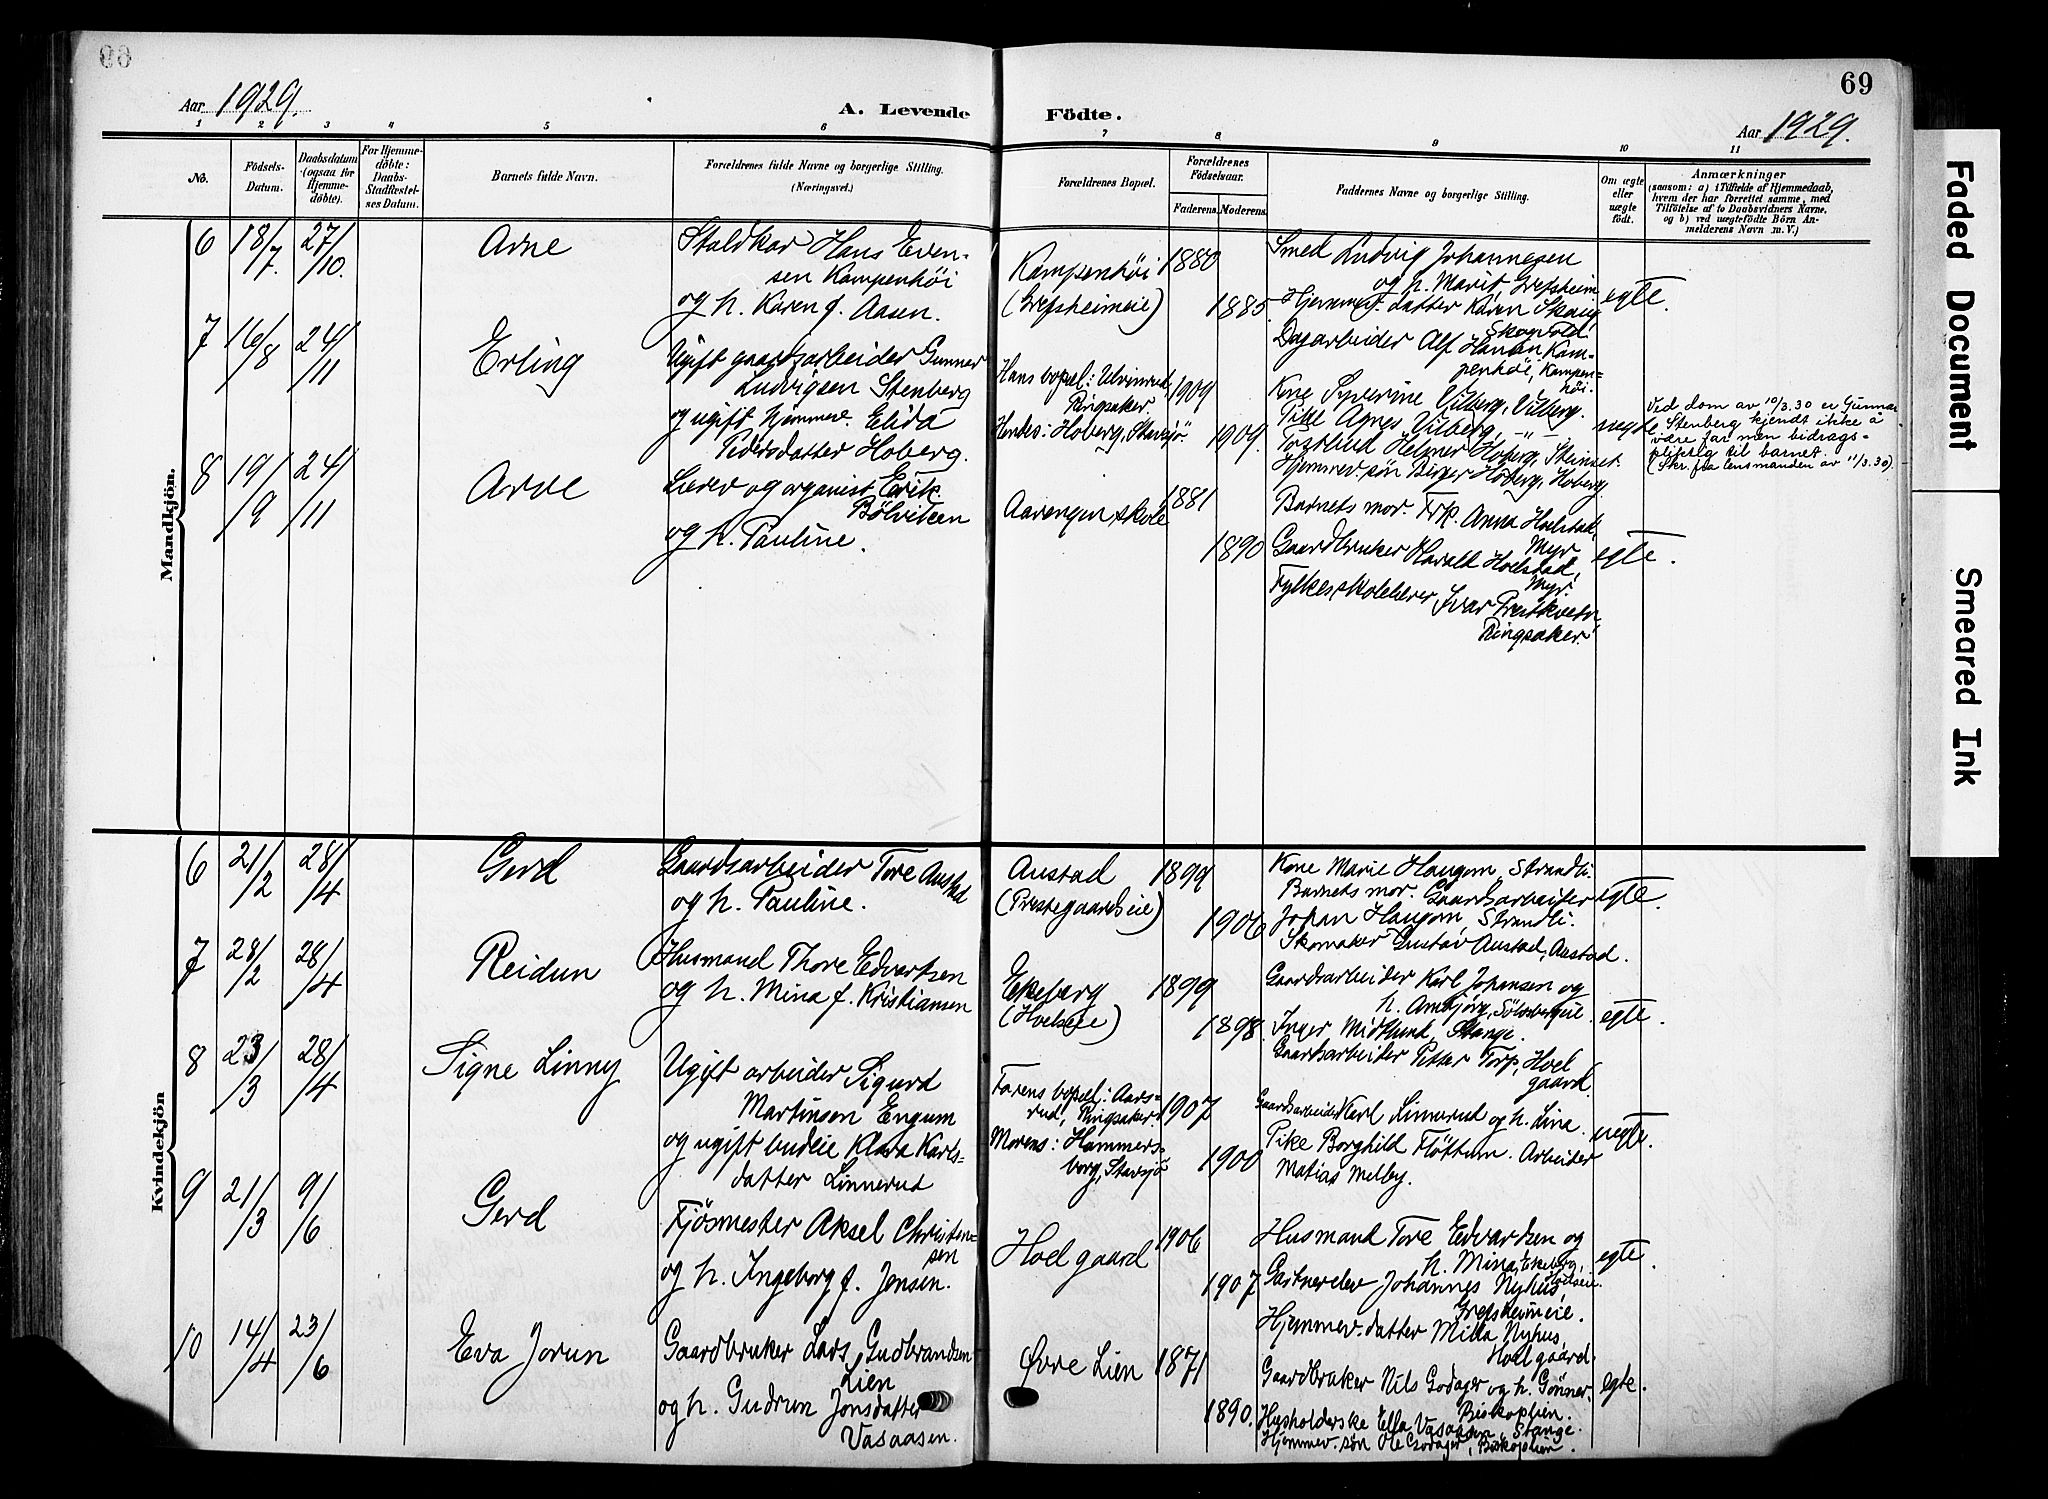 69
Aar 1929.
A. Levende Födte.
Aar 1929.
1 2 3 4 5 6 7 8 9 10 11
No.
Födsels-Datum.
Daabsdatum (ogsaa for Hjemme-döbte).
For Hjemme-döbte: Daabs-Stadfæstel-ses Datum.
Barnets fulde Navn.
Forældrenes fulde Navne og borgerlige Stilling. (Næringsvei.)
Forældrenes Bopæl.
Forældrenes Födselsaar.
Faderens. Moderens.
Faddernes Navne og borgerlige Stilling.
Om ægte eller uægte födt.
Anmærkninger
(saasom: a) i Tilfælde af Hjemmedaab, hvem der har forrettet samme, med Tilföielse af to Daabsvidners Navne, og b) ved uægtefödte Börn An-melderens Navn m. V.)
Mandkjön.
6 18/7. 27/10. Arne
Staldkar Hans Even-
sen Kampenhöi
og h. Karen f. Aasen.
Kampenhöi
(Grefsheimeie)
1880
1885
Smed Ludvig Johannesen
og h. Marit, Grefsheim
Hjemmev. datter Karen Skaug,
Skogvold
Dagarbeider Alf Hansen Kam-
penhöi, Kampen-
höi.
egte.
7 16/8 24/11 Erling
Ugift gaardsarbeider Gunnar
Ludvigsen Stenberg
og ugift hjemmev. Elida
Pedersdatter Hoberg.
Hans bopæl: Ulvinrud,
Ringsaker.
Hendes: Hoberg, Stavsjö.
1909
1909.
Kone Syverine Vilberg, Vilberg.
Pike Agnes Vilberg, -"-
Torstein Helmer Hoberg, Steinset.
Hjemmev. sön Birger Hoberg, Hoberg
uegte
Ved dom av 10/3.30 er Gunnar
L. Stenberg kjendt ikke å
være far men bidrags-
pliktig til barnet.
(Skr. fra lensmanden av 11/3.30).
8 19/9 24/11 Arne
Lærer og organist Erik
Bölviken
og h. Pauline.
Aarengen skole
1881
1890
Barnets mor. Frk. Anna Hoelstad,
Myr
Gaardbruker Harald Hoelstad,
Myr.
Fylkesskolelærer Ivar Prestkvern,
Ringsaker.
egte.
Kvindekjön
6 21/2 28/4 Gerd
Gaardsarbeider Tore Austad
og h. Pauline.
Austad
(Prestegaardseie)
1899
1906
Kone Marie Haugom, Strandli.
Barnets mor. Gaardsarbeider
Johan Haugom, Strandli.
Skomaker Gustav Austad, Austad.
egte.
7 28/2 28/4 Reidun
Husmand Thore Edvartsen
og h. Mina f. Kristiansen
Ekeberg
(Hoelseie)
1899
1898.
Gaardsarbeider Karl Johansen og
h. Ambjörg, Sölvsbergeie
Inger Midtlund, Stange.
Gaardsarbeider Petter Torp, Hoel
gaard.
egte.
8 23/3 28/4 Signe Linny
Ugift arbeider Sigurd
Martinsen Engum
og ugift budeie Klara Karls-
datter Linnerud
Farens bopæl: Aars-
rud, Ringsaker.
Morens: Hammers-
borg, Stavsjö
1907
1900
Gaardsarbeider Karl Linnerud og h. Lina.
Pike Borghild Flöttum. Arbeider
Matias Melby.
uegte.
9 21/3 9/6 Gerd
Fjösmester Aksel Christen-
sen
og h. Ingeborg f. Jensen.
Hoel gaard
1906
1907
Husmand Tore Edvardsen og
h. Mina, Ekeberg,
Hoelseie.
Gartnerelev Johannes Nyhus,
Grefsheimeie.
Hjemmev. datter Milla Nyhus,
Hoel gaard.
egte.
10 14/4 23/6 Eva Jorun
Gaardbruker Lars Gudbrandsen
Lien
og h. Gudrun Jonsdatter
Vasaasen.
Övre Lien
1871
1890.
Gaardbruker Nils Godager og h. Gönner,
Biskoplien.
Husholderske Ella Vasaasen, Stange.
Hjemmev. sön Ole Godager, Biskoplien.
egte.
Faded Document
Smeared Ink